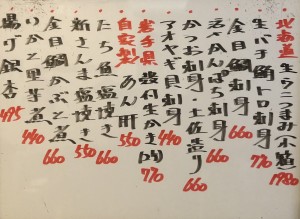 北海道 生ウニつまみ(小箱) 1980
生バチ鮪トロ刺身 770
金目鯛刺身 660
活〆かんぱち刺身 660
かつお刺身・土佐造り 660
アオヤギ貝刺身 440
岩手県岩付生かき(2ヶ) 770
自家製あん肝 550
たち魚塩焼き 660
新さんま塩焼き 550
金目鯛かぶと煮 660
いかと里芋煮 440
揚げ銀杏 495